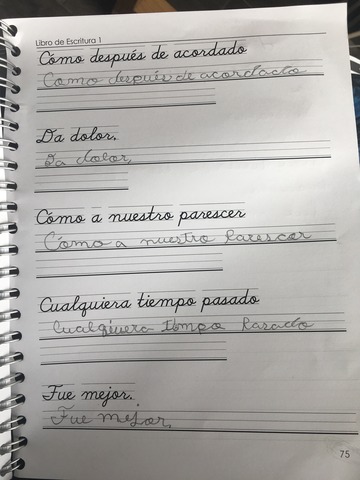 Libro de Escritura 1
Cómo después de acordado
Como después de acordado
Da dolor.
Da dolor.
Cómo a nuestro parescer
Cómo a nuestro parescer
Cualquiera tiempo pasado
Cualquiera tiempo pasado
Fue mejor.
Fue mejor.
75